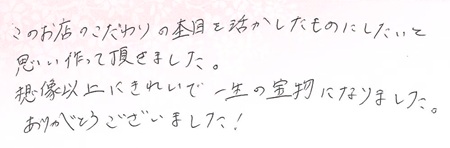 このお店のこだわりの杢目を活かしたものにしたいと
思い作って頂きました。
想像以上にきれいで一生の宝物になりました。
ありがとうございました!